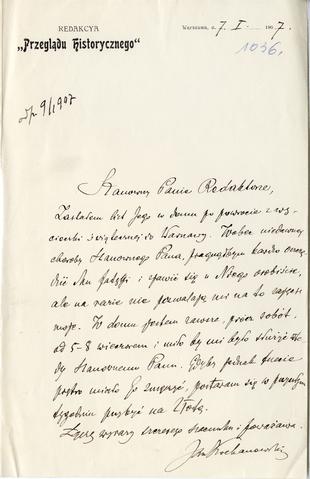 REDAKCYA
„Przeglądu Historycznego“
Warszawa, d. 7. I. 1907.
1036.
odp 9/I 907
Szanowny Panie Redaktorze,
Zastałem list Jego w domu po powrocie z wy-
cieczki świątecznej do Warszawy. Wobec niedawnej
choroby Szanownego Pana, pragnąłbym bardzo oszczę-
dzić Mu fatygi i zjawić się u Niego osobiście,
ale na razie nie pozwalają mi na to zajęcia
moje. W domu jestem zawsze, prócz sobót,
od 5-8 wieczorem i miło by mi było służyć wte-
dy Szanownemu Panu. Gdyby jednak trzecie
piętro miało Go zmęczyć, postaram się w przyszłym
tygodniu przybyć na Złotą.
Łączę wyrazy szczerego szacunku i poważania.
Jan Kochanowski